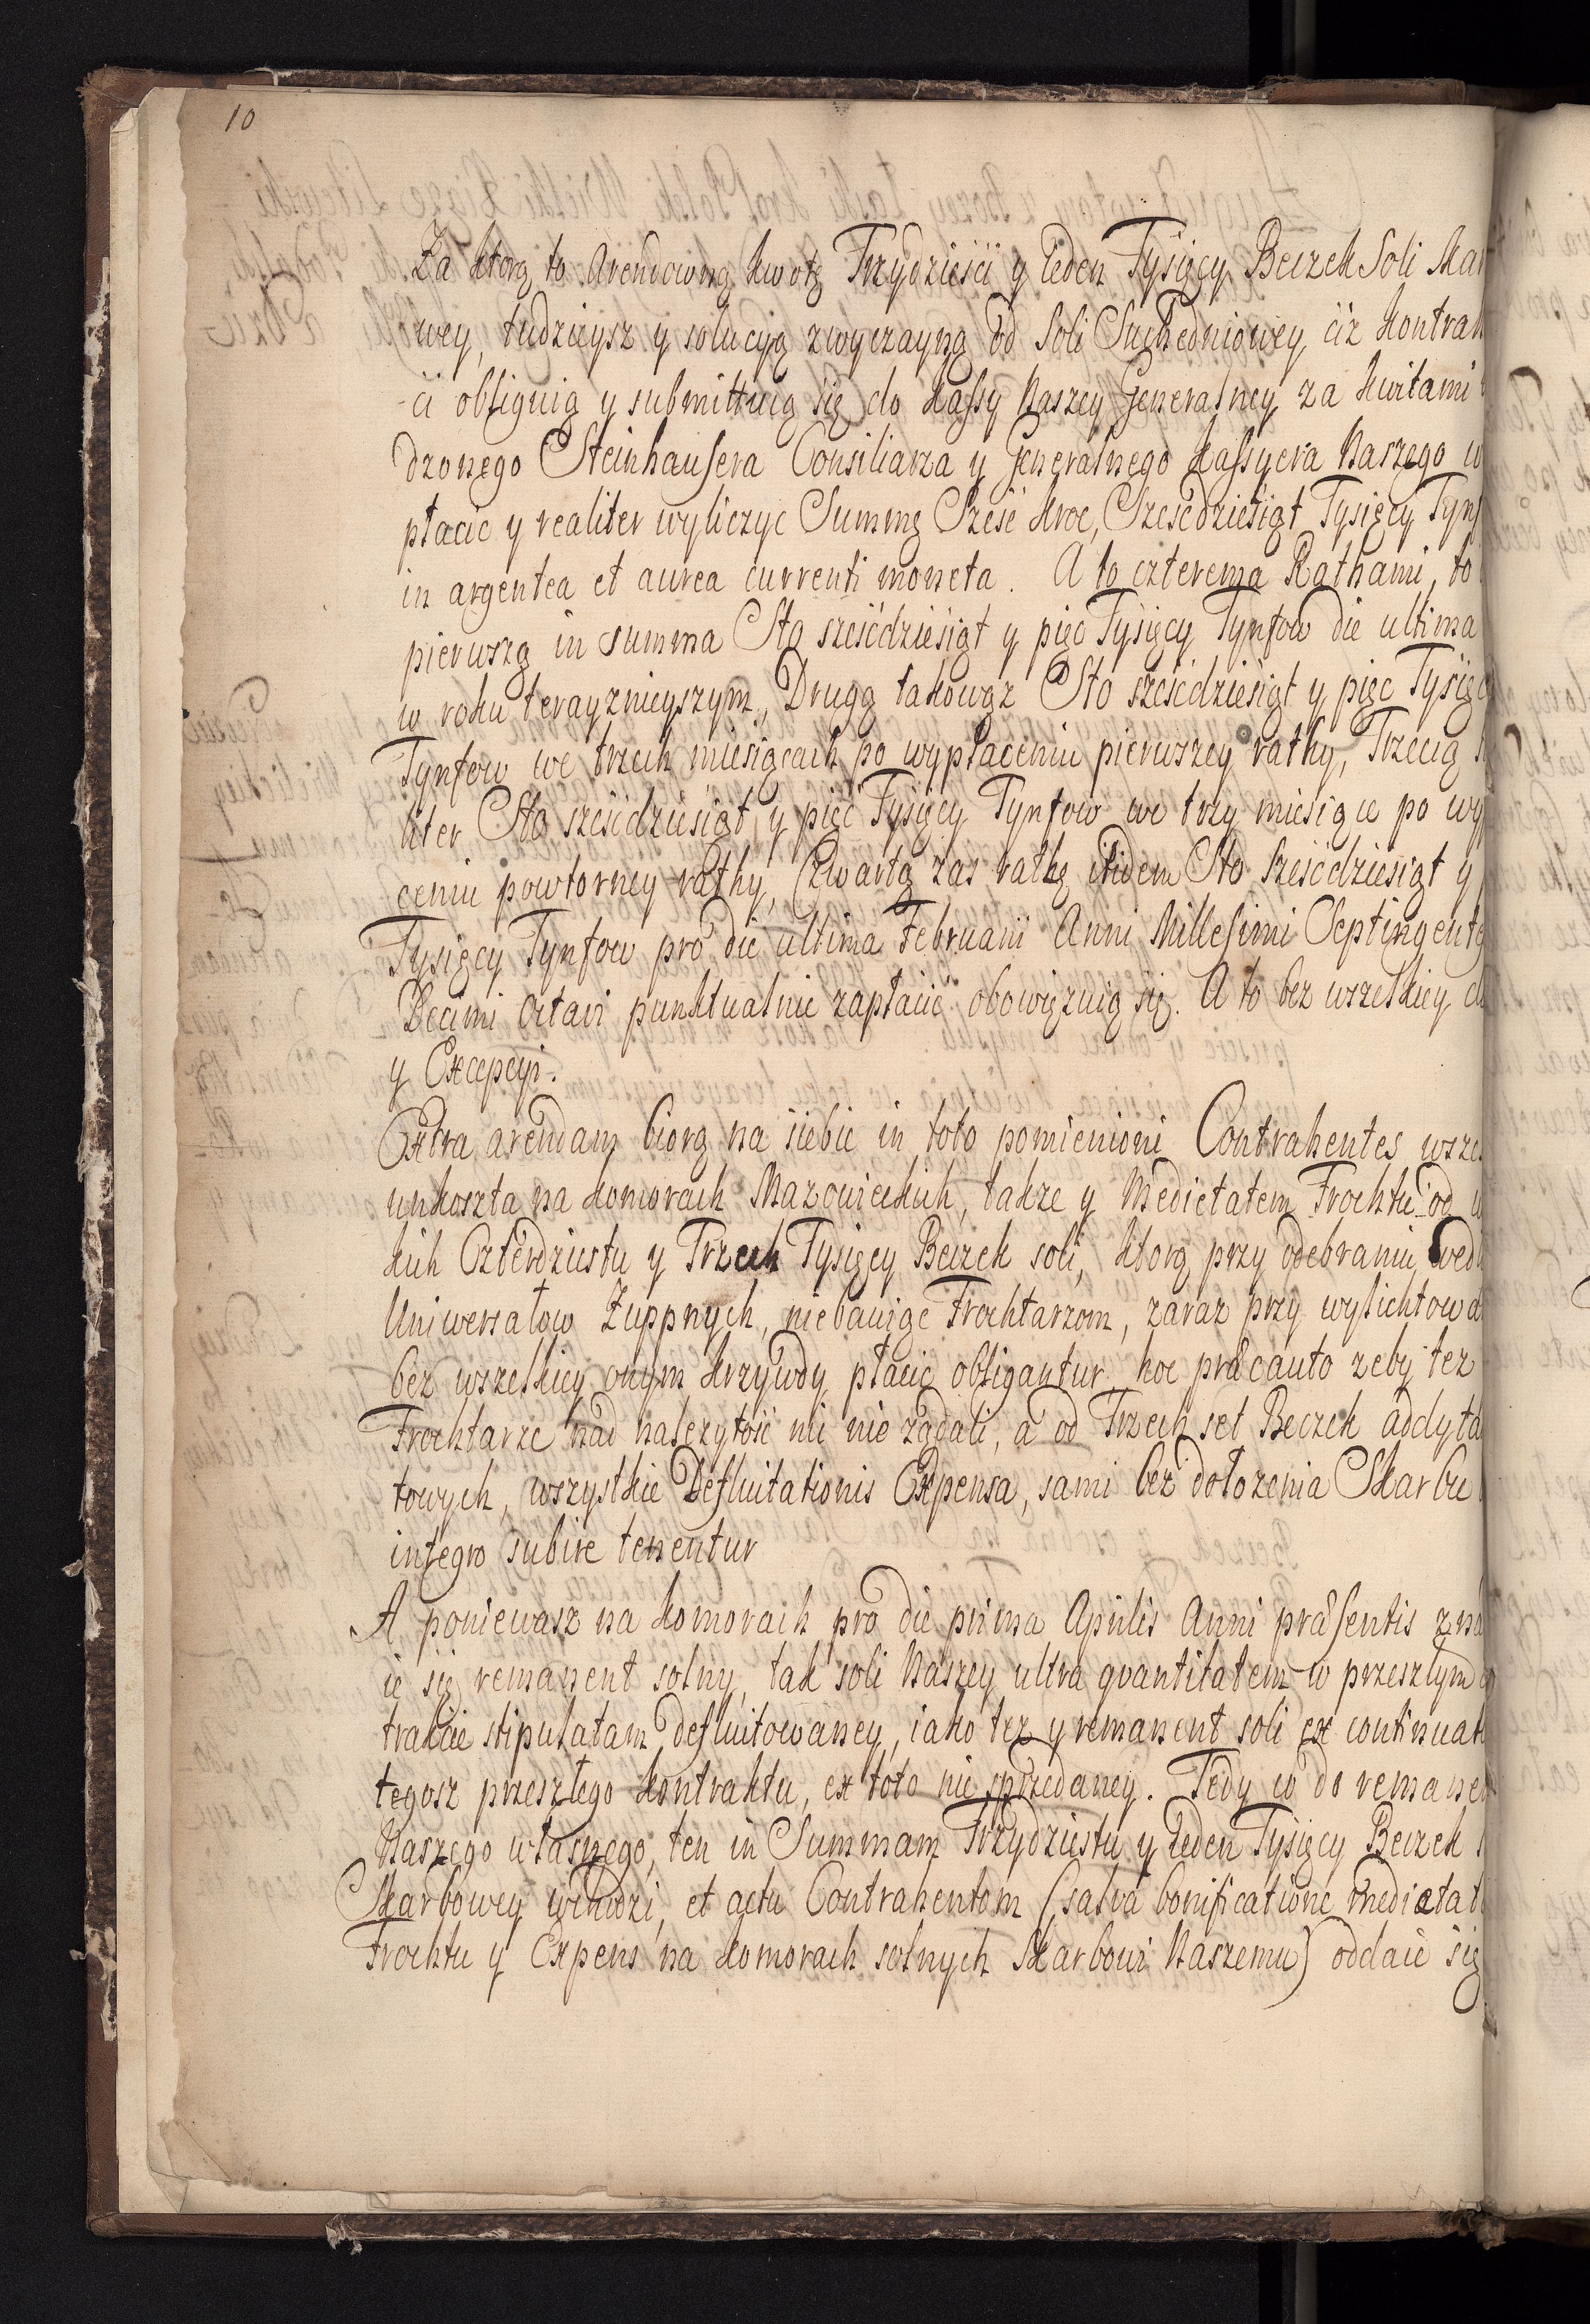 10
Za ktorą to Arendowną kwotę Trzydzieści y Ieden Tysięcy Beczek Soli Skar
wey, tudzieysz y solucyią zwyczayną od Soli Suchedniowey ciż kontrak
ci obliguią y submittuią się do kassy Naszey Generalney za kwitami
dzonego Steinhausera Consiliarza y Generalnego kassyera Naszego w
płacic y realiter wyliczyc Summę Sześć kroc, Sześcdziesiąt Tysięcy Tynf
in argentea et aurea currenti moneta. A to czterema Rathami, to
pierwszą in summa Sto sześćdziesiąt y pięc Tysięcy Tynfow die ultima
w roku terayznieyszym, Drugą takowąz Sto sześcdziesiąt y pięc Tysięc
Tynfow we trzech miesiącach po wypłaceniu pierwszey rathy, Trzecią
liter Sto sześcdziesiąt y pięć Tysięcy Tynfow we trzy miesiące po wy
ceniu powtorney rathy, Czwartą zas rathę itidem Sto Sześćdziesiąt y
Tysięcy Tynfow pro die ultima Februarii Anni Millesimi Septingente
Decimi Octavi punktualnie zapłacić obowięzuią się. A to bez wszelkiey
y Excepcyi.
Extra arendam biorą na siebie in toto pomienioni Contrahentes wsze
unkoszta na komorach Mazowieckich, takze y Medietatem Frochtu od
kich Czterdziestu y Trzech Tysięcy Beczek soli, ktorą przy odebraniu wed
Uniwersałow Żuppnych, niebawiąc Frochtarzom, zaraz przy wylichtowa
bez wszelkiey onym krzywdy płacic obligantur, hoc præcauto zeby tez
Frochtarze nad nalezytość nic nie żądali, a od Trzech set Beczek addyta
towych, wszystkie Defluitationis Expensa, sami bez dołozenia Skarbu
integro subire tenentur
A poniewasz na komorach pro die prima Aprilis Anni præsentis zna
ie się remanent solny, tak soli Naszey ultra quantitatem w przeszłym
trakcie stipulatam defluitowaney, iako tez y remanent soli ex continuat
tegosz przeszłego kontraktu, ex toto nie sprzedaney. Tedy co do remanen
Naszego własnego, ten in Summam Trzydziestu y Ieden Tysięcy Beczek
Skarbowey wchodzi, et actu Contrahentom (salva bonificatione medietat
Frochtu y Expens na komorach solnych Skarbowi Naszemu) oddaie się